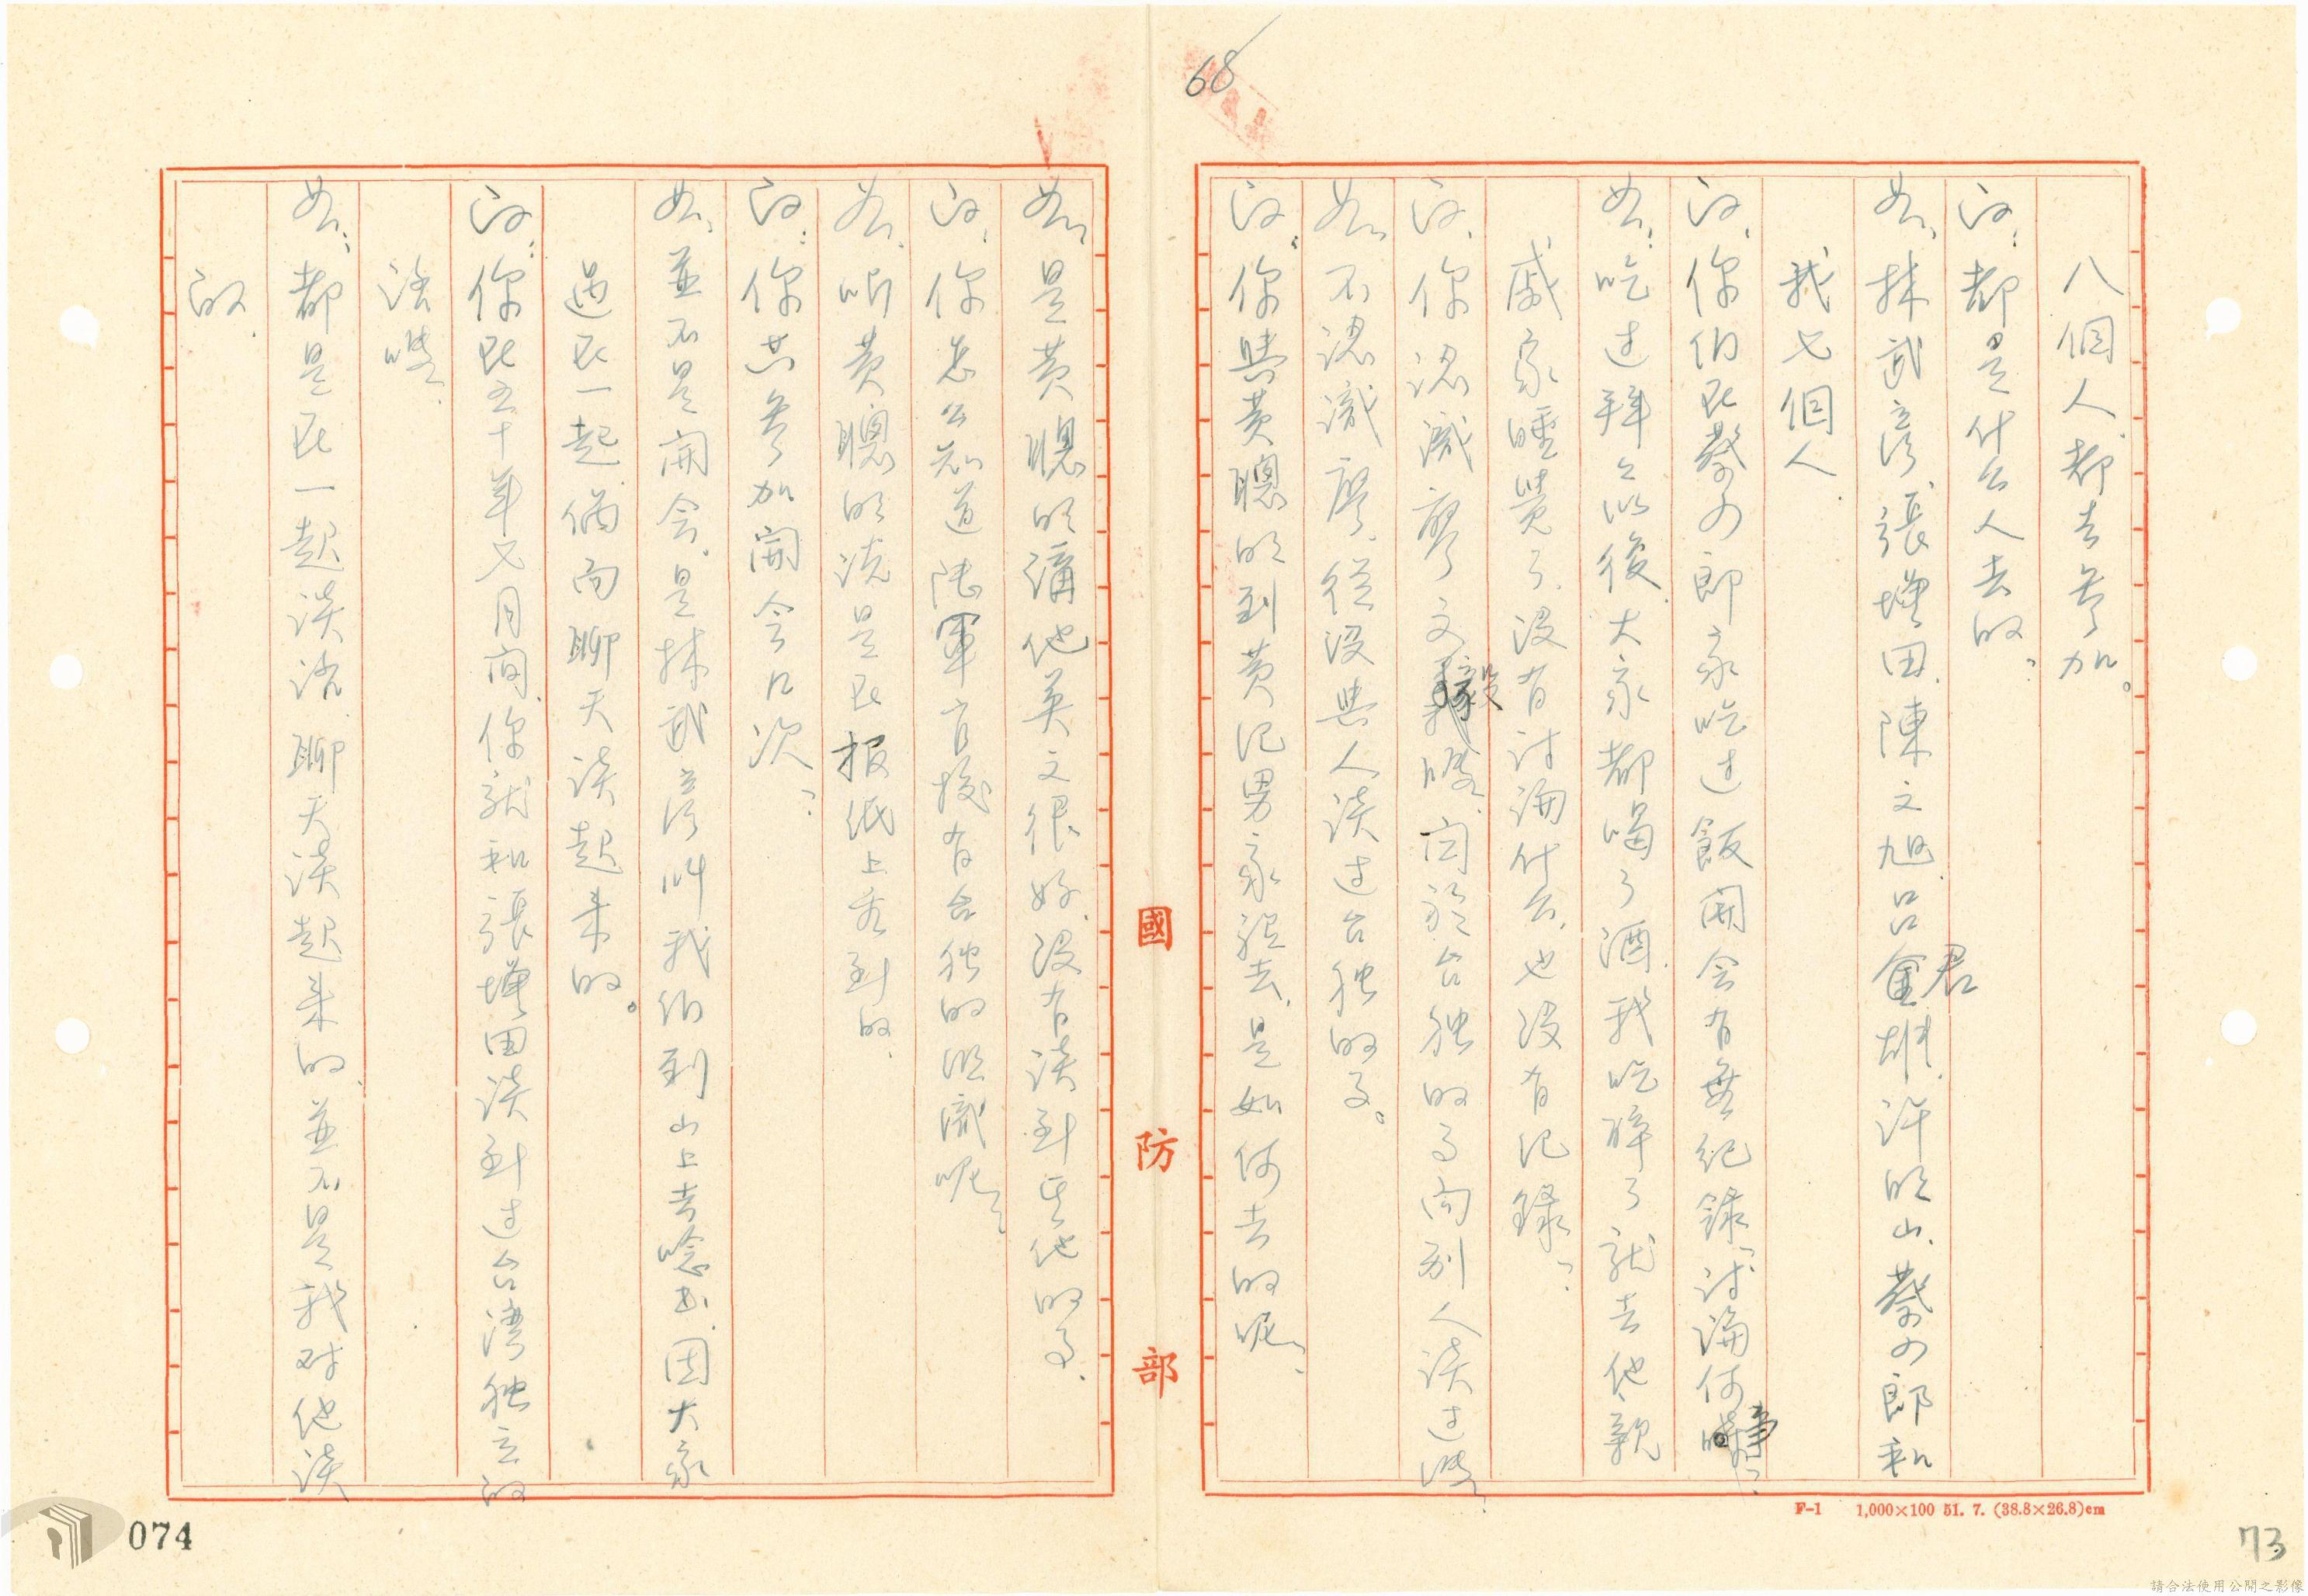 68
八個人都去參加。
問：都是什么人去的？
答：林武彥、張增田、陳文旭、呂君雄、許明山、蔡の郎和
我七個人.
問：你们在蔡の郎家吃过飯開会有無紀錄？討論何事？
答：吃过拜々以後大家都喝了酒.我吃醉了就去他親
戚家睡覺了.沒有討論什么.也沒有记錄？
問：你認識廖文毅嗎.関於台独的事向別人談过嗎？
答：不認識廖.從沒與人談过台独的事。
問：你與黃聰明到黃记男家裡去.是如何去的呢？
國防部
答：是黃聰明講他英文很好.沒有談到其他的事.
問：你怎么知道陸軍官校有台独的組識呢？
答：听黃聰明说是在报纸上看到的.
問：你共參加開会几次？
答：並不是開会.是林武彥叫我们到山上去唸书.因大家
過在一起.偶而聊天談起来的。
問：你在五十年七月間.你就和張增田談到过台湾独立的
話嗎.
答：都是在一起談话.聊天談起来的.並不是我对他談
的.
F-1 1,000×100 51. 7. (38.8×26.8)cm
074
73
請合法使用公開之影像